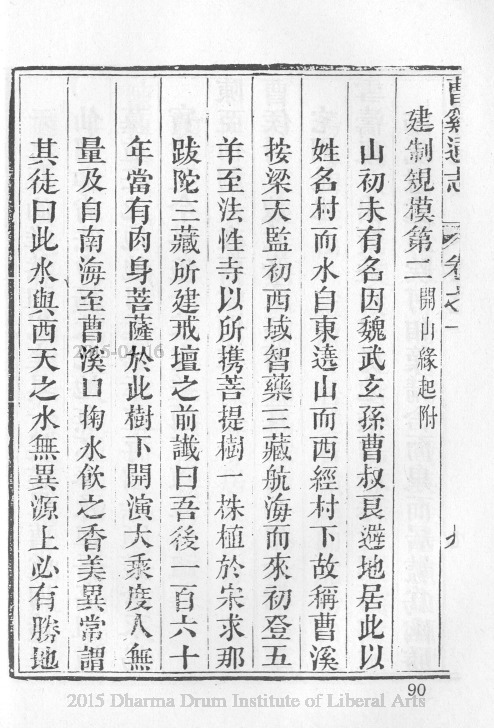 曹溪通志 卷之一 九
建制規模第二 開山緣起附
山初未有名因魏武玄孫曹叔良避地居此以
姓名村而水自東遶山而西經村下故稱曹溪
按梁天監初西域智藥三藏航海而來初登五
羊至法性寺以所携菩提樹一株植於宋求那
跋陀三藏所建戒壇之前讖曰吾後一百六十
年當有肉身菩薩於此樹下開演大乘度人無
量及自南海至曹溪口掬水飲之香美異常謂
其徒曰此水與西天之水無異源上必有勝地
90
2015 Dharma Drum Institute of Liberal Arts